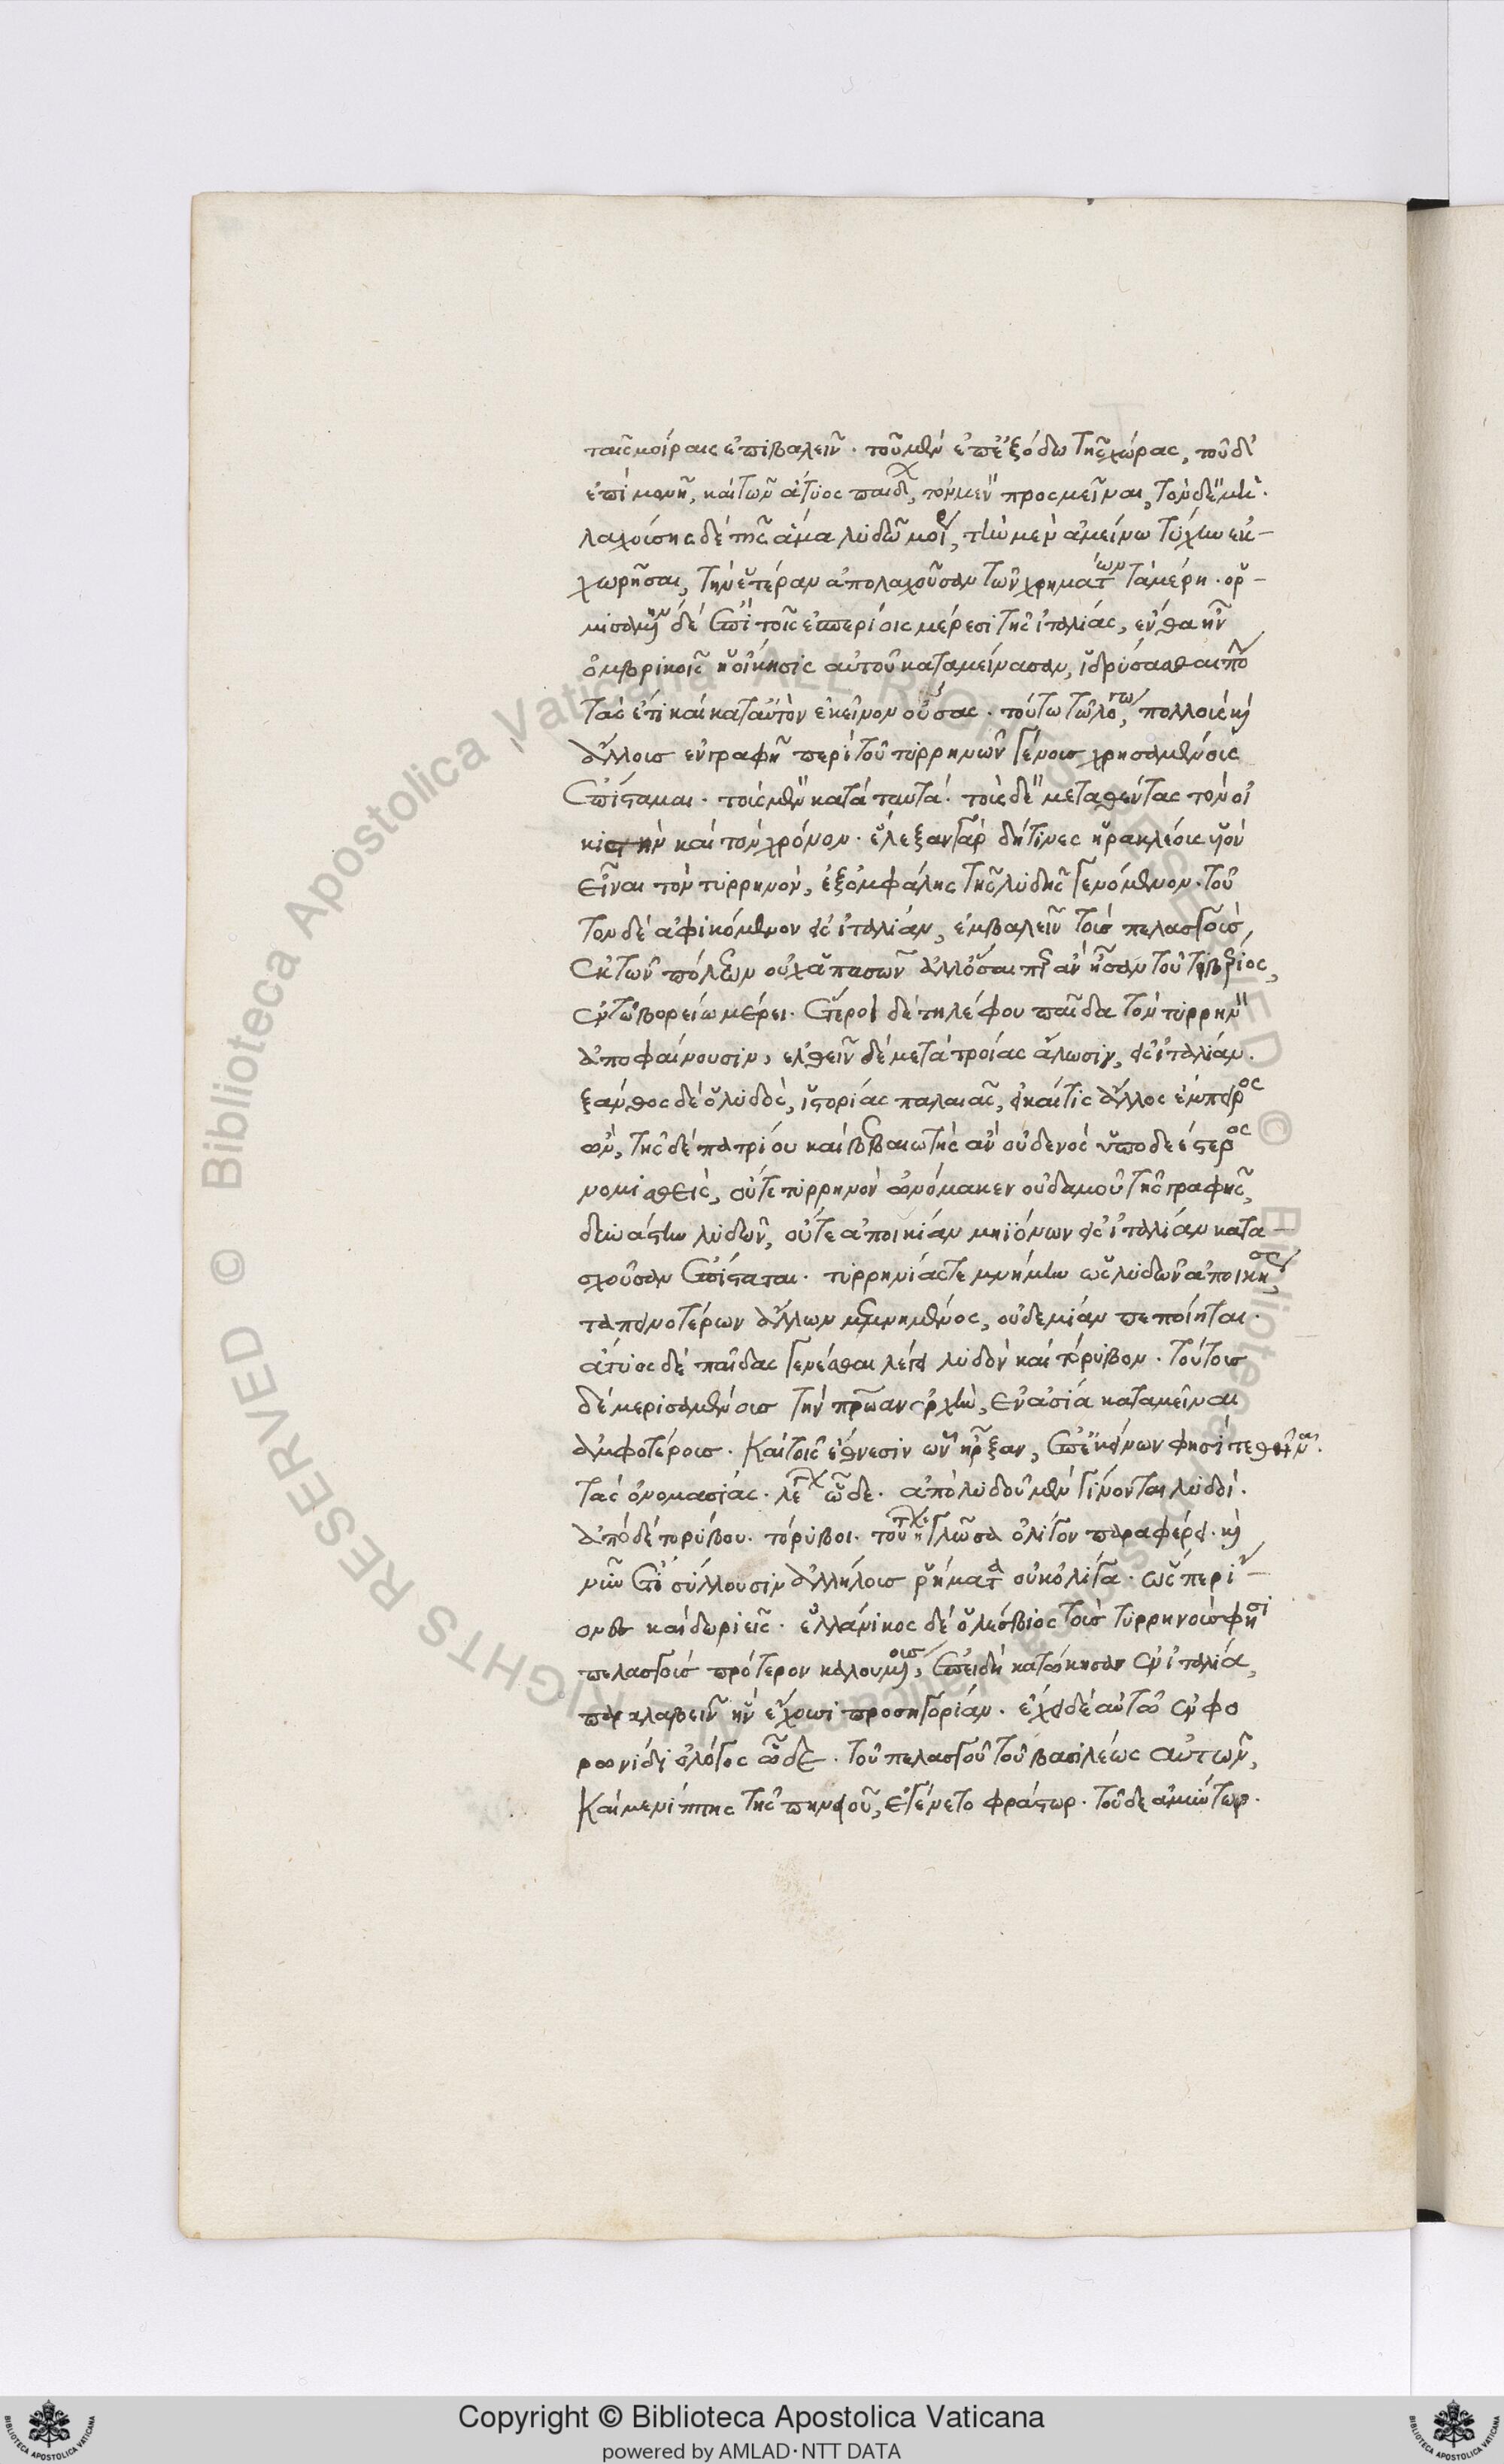 ταῖς μοίραις ἐπιβαλεῖν. τοῦ μὲν ἐπ' ἐξόδω τῆς χώρας, τοῦ δὲ
ἐπὶ μονῆ, καὶ τῶν ἄτυος παίδ, τὸν μὲν προσμεῖναι, τὸν δὲ μὴ.
λαχούσης δὲ τῆς ἅμα λυδῶ μοί, τὴν μὲν ἀμείνω τύχην ἐκ-
χωρῆσαι, τὴν ἑτέραν ἀπολαχοῦσαν τῶν χρημάτων τὰ μέρη. ὁρ-
μισαμένην δὲ ἐπὶ τοῖς ἑσπερίοις μέρεσι τῆς ἰταλίας, ἔνθα ἦν
ὀμβρικοῖς ἡ οἴκησις αὐτοῦ καταμείνασαν, ἱδρύσασθαι πό
τὰς ἔτι καὶ κατ' αὐτὸν ἐκεῖνον οὔσας. τούτω τῶ λόγω, πολλοῖς καὶ
ἄλλοις συγγραφῆ περὶ τοῦ τυρρηνῶν γένους χρησαμένοις
ἐπίσταμαι. τοῖς μὲν κατὰ ταυτά. τοῖς δὲ μεταθέντας τὸν οἰ
κιστὴν καὶ τὸν χρόνον. ἔλεξαν γὰρ δή τινες ἡρακλέους υἱὸν
εἶναι τὸν τυρρηνὸν, ἐξ ὀμφάλης τῆς λυδῆς γενόμενον. τοῦ
τον δὲ ἀφικόμενον εἰς ἰταλίαν, ἐμβαλεῖν τοὺς πελασγοὺς,
ἐκ τῶν πόλεων οὐχ ἁπασῶν ἀλλ' ὅσαι πέραν ἦσαν τοῦ τιβέριος,
ἐν τῶ βορείω μέρει. ἕτεροι δὲ τηλέφου παῖδα τὸν τυρρην
ἀποφαίνουσιν, ἐλθεῖν δὲ μετὰ τροίας ἅλωσιν, εἰς ἰταλίαν.
ξάνθος δὲ ὁ λυδὸς, ἱστορίας παλαιᾶς, εἰ καί τις ἄλλος ἔμπειρος
ὢν, τῆς δὲ πατρίου καὶ βεβαιωτὴς ἂν οὐδενὸς ὑποδεέστερος
νομισθεὶς, οὔτε τυρρηνὸν ὠνόμακεν οὐδαμοῦ τῆς γραφῆς,
δυνάστην λυδῶν, οὔτε ἀποικίαν μηϊόνων εἰς ἰταλίαν κατα-
σχοῦσαν ἐπίσταται. τυρρηνίας τε μνήμην ὡς λυδῶν ἀποικήσ
ταπεινοτέρων ἄλλων μεμνημένος, οὐδεμίαν πεποίηται.
ἄτυος δὲ παῖδας γενέσθαι λέγει λυδὸν καὶ τόρυβον. τούτους
δὲ μερισαμένους τὴν πρώαν ἀρχὴν, ἐν ἀσία καταμεῖναι
ἀμφοτέρους. καὶ τοῖς ἔθνεσιν ὧν ἦρξαν, ἐπ' ἐκείνων φησὶ τεθῆναι.
τὰς ὀνομασίας. λέ ὧδε. ἀπὸ λυδοῦ μὲν γίνονται λυδοί.
ἀπὸ δὲ τορύβου. τόρυβοι. τού ἡ γλῶσσα ὀλίγον παραφέρει. καὶ
νῦν ἔτι σύλλουσιν ἀλλήλους ῥήματα οὐκ ὀλίγα. ὥσπερ ἴ-
ονες καὶ δωριεῖς. ἑλλάνικος δὲ ὁ λέσβιος τοὺς τυρρηνούς φησὶ
πελασγοὺς πρότερον καλουμένους, ἐπειδὴ κατώκησαν ἐν ἰταλία,
παραλαβεῖν ἣν ἔχουσι προσηγορίαν. ἔχει δὲ αὐτῶ ἐν φο
ρωνίδι ὁ λόγος ὧδε. τοῦ πελασγοῦ τοῦ βασιλέως αὐτῶν,
καὶ μενίππης τῆς πηνειοῦ, ἐγένετο φράστωρ. τοῦ δὲ ἀμύντωρ.
Copyright © Biblioteca Apostolica Vaticana
powered by AMLAD·NTT DATA